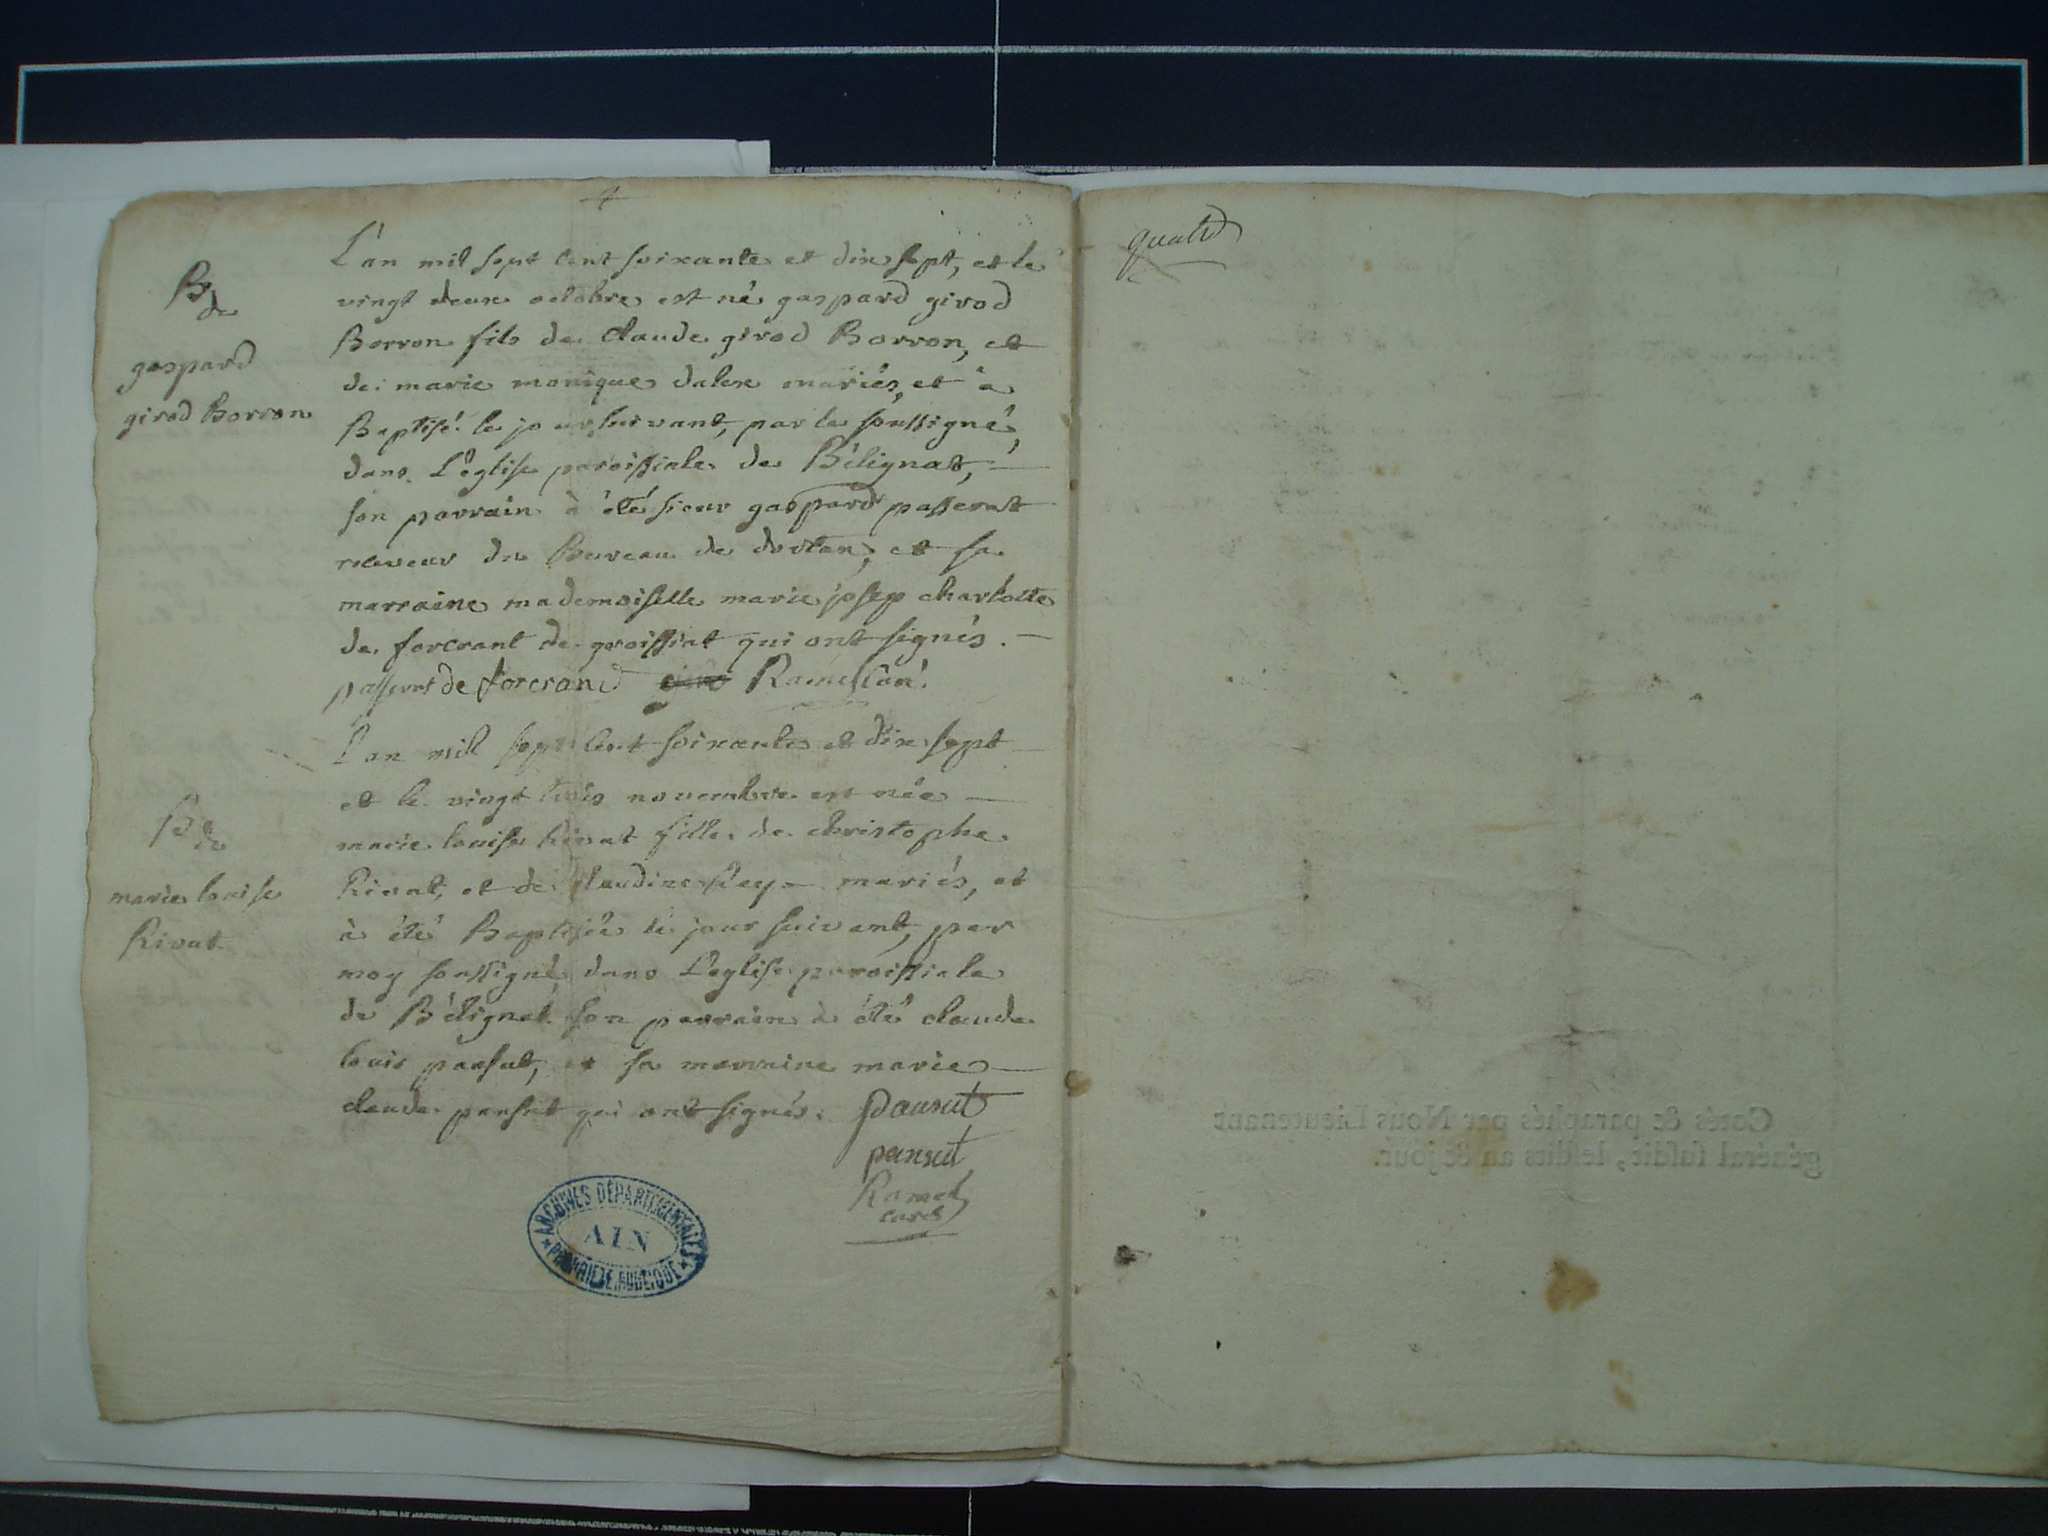 B
de
gaspard
girod Borron
L'an mil sept cent soixante et dix sept, et le
vingt deux octobre est né gaspard girod
Borron fils de claude girod Borron, et
de marie monique dalex mariés, et à
Baptisé le jour suivant, par le soussigné,
dans L'église paroissiale de Bélignat,
son parrain à été sieur gaspard passerat
receveur du Bureau de dortan, et sa
marraine mademoiselle marie josep charlotte
de forcrant de groissiat qui ont signés.
passerat de forcrand Ramel Curé.
B
de
marie louise
Rivat
L'an mil sept cent soixante et dix sept
et le vingt trois novembre est née
marie louise Rivat fille de christophe
Rivat, et de claudine Rey mariés, et
à été Baptisée le jour suivant, par
moy soussigné dans L'église paroissiale
de Bélignat. son parrain à été claude
louis pansut, et sa marraine marie
claude pansut qui ont signés. Pansut
pansut
Ramel
curé
ARCHIVES DÉPARTEMENTALES
AIN
PROPRIÉTÉ PUBLIQUE
quatre
Cotés & paraphés par Nous Lieutenant
général susdit, lesdits an & jour.